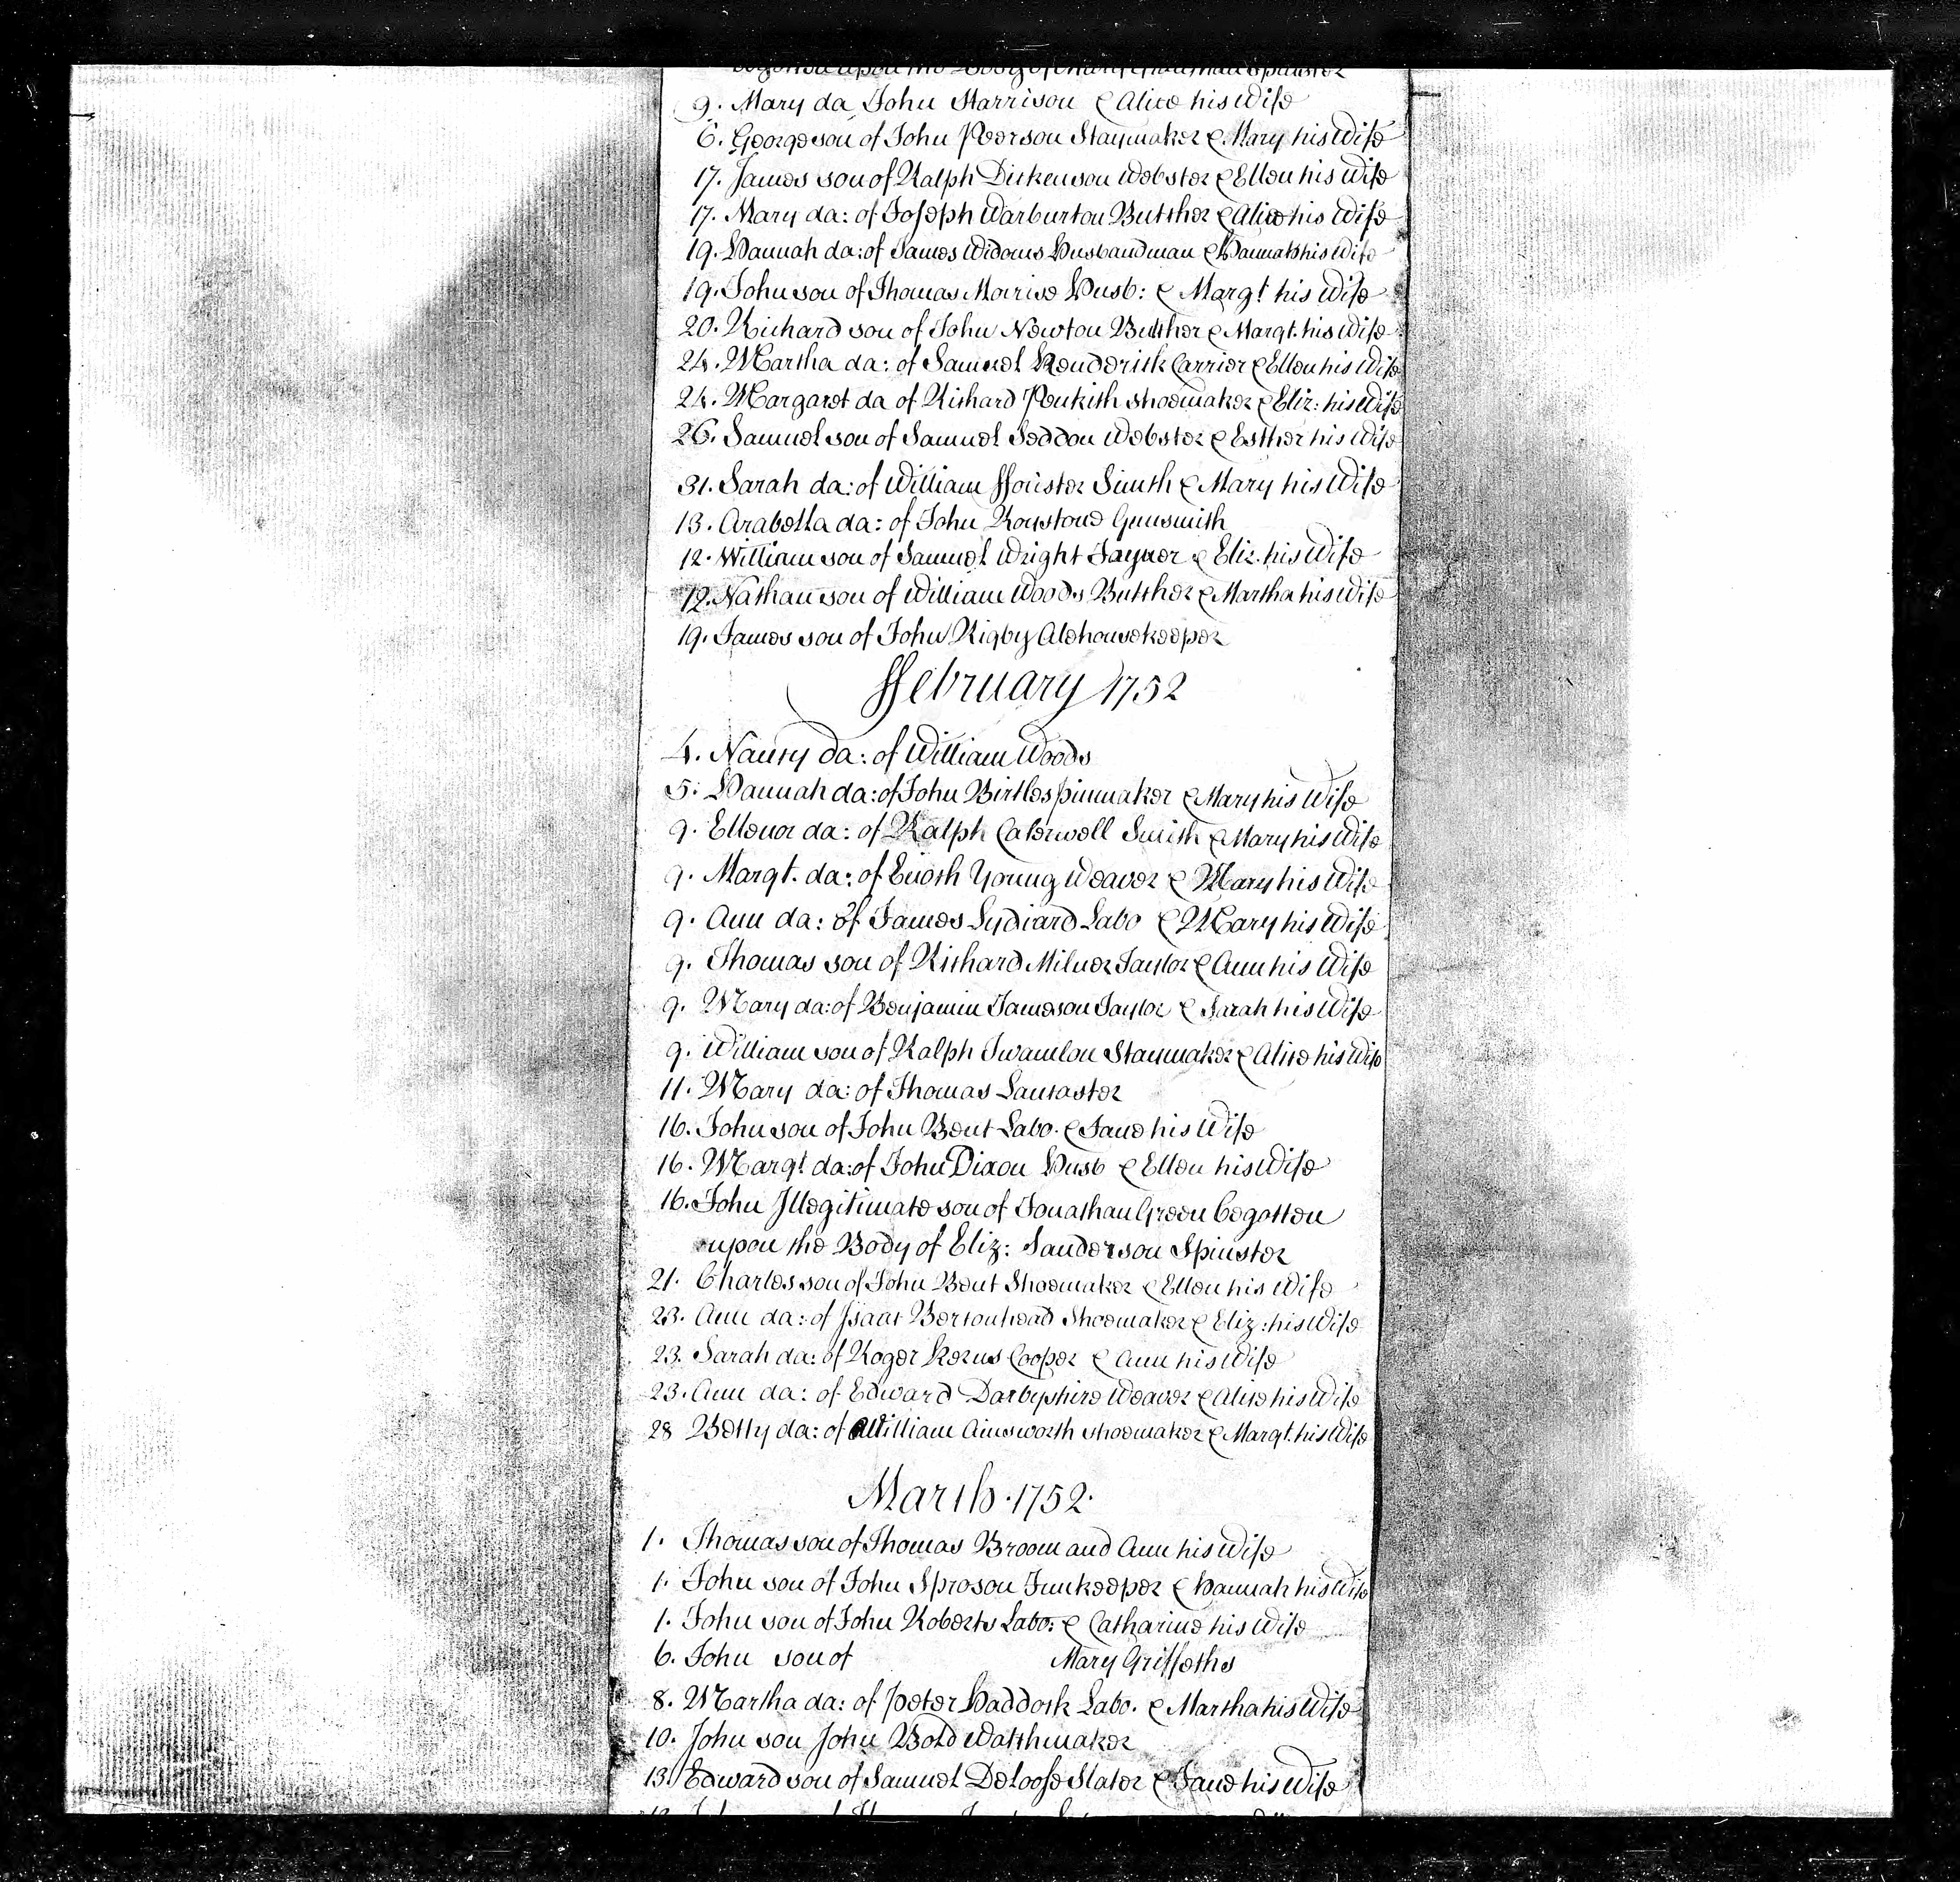 begotten upon the Body of Spinster
9. Mary da John Harrison & Alice his Wife
6. George son of John Peerson Staymaker & Mary his Wife
17. James son of Ralph Dickenson Webster & Ellen his Wife
17. Mary da: of Joseph Warburton Butcher & Alice his Wife
19. Hannah da: of James Widows Husbandman & Hannah his Wife
19. John son of Thomas Morrise Husb: & Margt his Wife
20. Richard son of John Newton Butcher & Margt. his Wife
24. Martha da: of Samuel Kenderick Carrier & Ellen his Wife
24. Margaret da of Richard Penkith shoemaker & Eliz: his Wife
26. Samuel son of Samuel Seddon Webster & Esther his Wife
31. Sarah da: of William ffoister Smith & Mary his Wife
13. Arabella da: of John Roystone Gunsmith
12. William son of Samuel Wright & Eliz. his Wife
12. Nathan son of William Woods Butcher & Martha his Wife
19. James son of John Rigby Alehousekeeper
ffebruary 1752
4. Nancy da: of William Woods
5: Hannah da: of John Birtles pinmaker & Mary his Wife
9. Ellenor da: of Ralph Caterwell Smith & Mary his Wife
9. Margt. da: of Enoch Young Weaver & Mary his Wife
9. Ann da: of James Lydiard Labo & Mary his Wife
9. Thomas son of Richard Milner Taylor & Ann his Wife
9. Mary da: of Benjamin Jameson Taylor & Sarah his Wife
9. William son of Ralph Swamlon Staymaker & Alice his Wife
11. Mary da: of Thomas Lancaster
16. John son of John Bent Labo. & Jane his Wife
16. Margt da: of John Dixon Husb & Ellen his Wife
16. John Illegitimate son of Jonathan Green begotten
upon the Body of Eliz: Sanderson Spinster
21. Charles son of John Bent Shoemaker & Ellen his Wife
23. Ann da: of Isaac Bertonhead Shoemaker & Eliz: his Wife
23. Sarah da: of Roger Kerns Cooper & Ann his Wife
23. Ann da: of Edward Darbyshire Weaver & Alice his Wife
28 Betty da: of William Ainsworth shoemaker & Margt. his Wife
March. 1752.
1. Thomas son of Thomas Broom and Ann his Wife
1. John son of John Sproson Innkeeper & Hannah his Wife
1. John son of John Roberts Labo: & Catharine his Wife
6. John son of Mary Griffeths
8. Martha da: of Peter Haddock Labo. & Martha his Wife
10. John son John Bold Watchmaker
13. Edward son of Samuel Deloose Slater & Jane his Wife